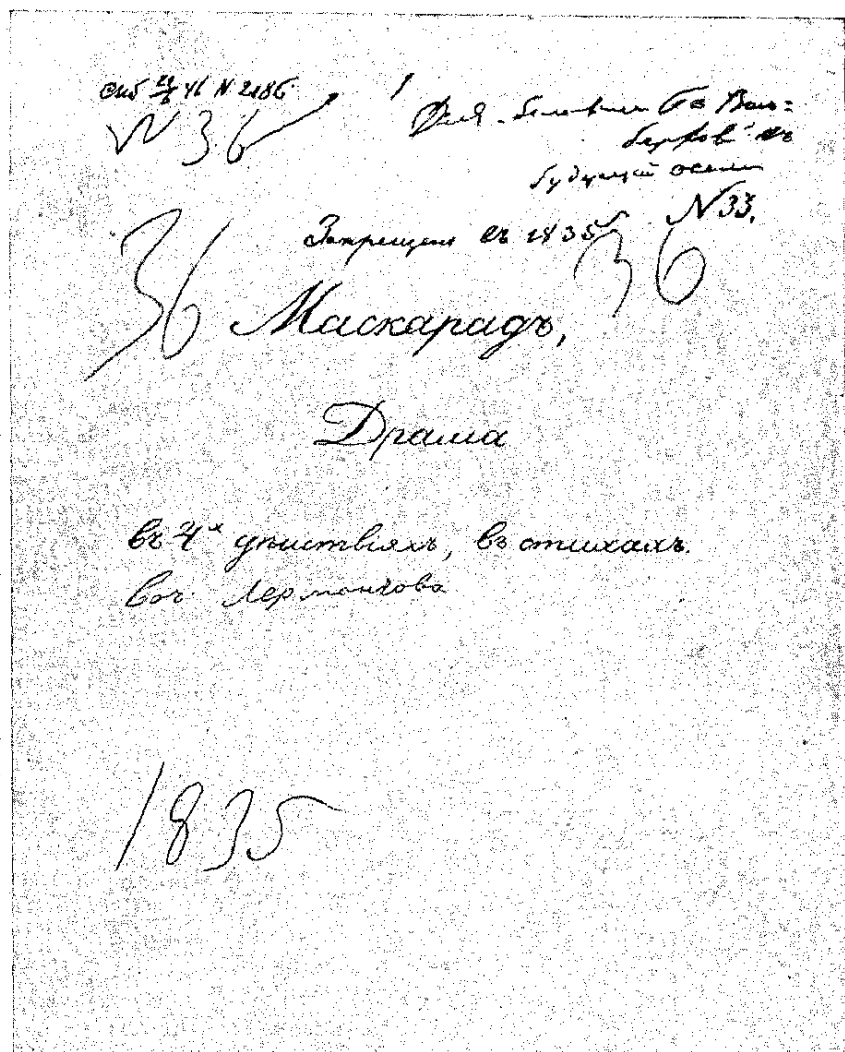 № 2186
№ 36
Для бенефиса Г-жи Валь=
берховой въ
будущей осени
№ 33.
Запрещена въ 1835
36
36
Маскарадъ,
Драма
въ 4х действiяхъ, въ стихахъ.
Соч. Лермонтова
1835